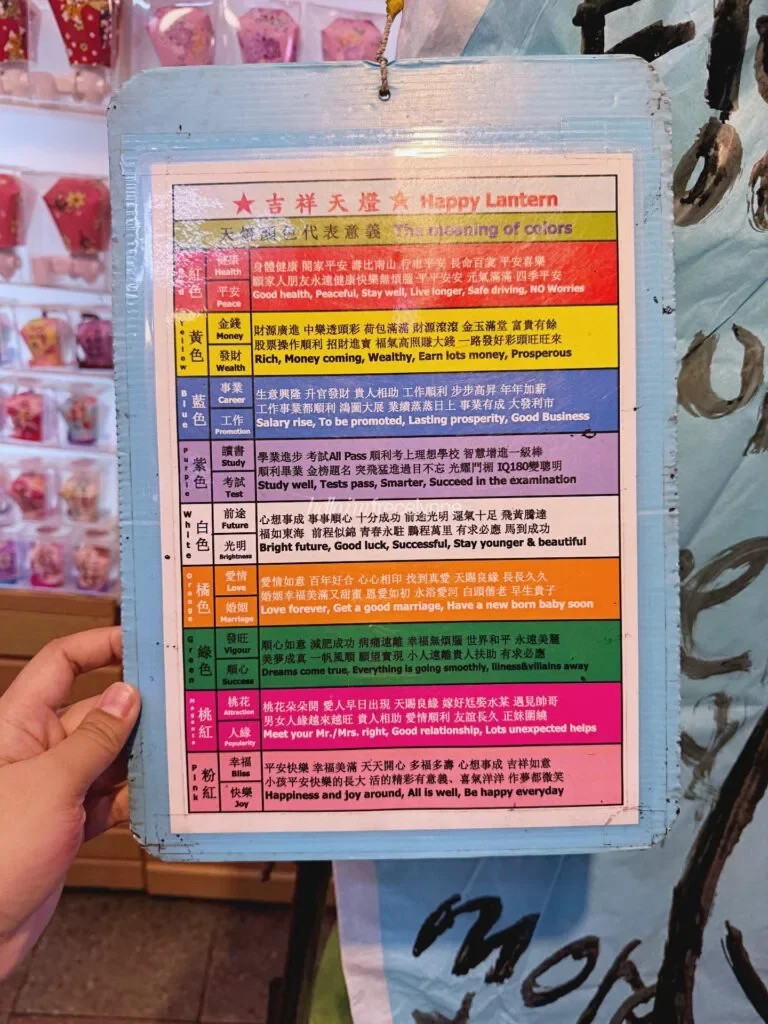 ★吉祥天燈★ Happy Lantern
天燈顏色代表意義 The meaning of colors
Red 紅色 健康 Health 平安 Peace
身體健康 闔家平安 壽比南山 行車平安 長命百歲 平安喜樂
願家人朋友永遠健康快樂無煩腦 平平安安 元氣滿滿 四季平安
Good health, Peaceful, Stay well, Live longer, Safe driving, NO Worries
Yellow 黃色 金錢 Money 發財 Wealth
財源廣進 中樂透頭彩 荷包滿滿 財源滾滾 金玉滿堂 富貴有餘
股票操作順利 招財進寶 福氣高照賺大錢 一路發好彩頭旺旺來
Rich, Money coming, Wealthy, Earn lots money, Prosperous
Blue 藍色 事業 Career 工作 Promotion
生意興隆 升官發財 貴人相助 工作順利 步步高昇 年年加薪
工作事業都順利 鴻圖大展 業績蒸蒸日上 事業有成 大發利市
Salary rise, To be promoted, Lasting prosperity, Good Business
Purple 紫色 讀書 Study 考試 Test
學業進步 考試All Pass 順利考上理想學校 智慧增進一級棒
順利畢業 金榜題名 突飛猛進過目不忘 光耀門楣 IQ180變聰明
Study well, Tests pass, Smarter, Succeed in the examination
White 白色 前途 Future 光明 Brightness
心想事成 事事順心 十分成功 前途光明 運氣十足 飛黃騰達
福如東海 前程似錦 青春永駐 鵬程萬里 有求必應 馬到成功
Bright future, Good luck, Successful, Stay younger & beautiful
Orange 橘色 愛情 Love 婚姻 Marriage
愛情如意 百年好合 心心相印 找到真愛 天賜良緣 長長久久
婚姻幸福美滿又甜蜜 恩愛如初 永浴愛河 白頭偕老 早生貴子
Love forever, Get a good marriage, Have a new born baby soon
Green 綠色 發旺 Vigour 順心 Success
順心如意 減肥成功 病痛遠離 幸福無煩腦 世界和平 永遠美麗
美夢成真 一帆風順 願望實現 小人遠離貴人扶助 有求必應
Dreams come true, Everything is going smoothly, Illness&villains away
Magenta 桃紅 桃花 Attraction 人緣 Popularity
桃花朵朵開 愛人早日出現 天賜良緣 嫁好尪娶水某 遇見帥哥
男女人緣越來越旺 貴人相助 愛情順利 友誼長久 正妹圍繞
Meet your Mr./Mrs. right, Good relationship, Lots unexpected helps
Pink 粉紅 幸福 Bliss 快樂 Joy
平安快樂 幸福美滿 天天開心 多福多壽 心想事成 吉祥如意
小孩平安快樂的長大 活的精彩有意義、喜氣洋洋 作夢都微笑
Happiness and joy around, All is well, Be happy everyday